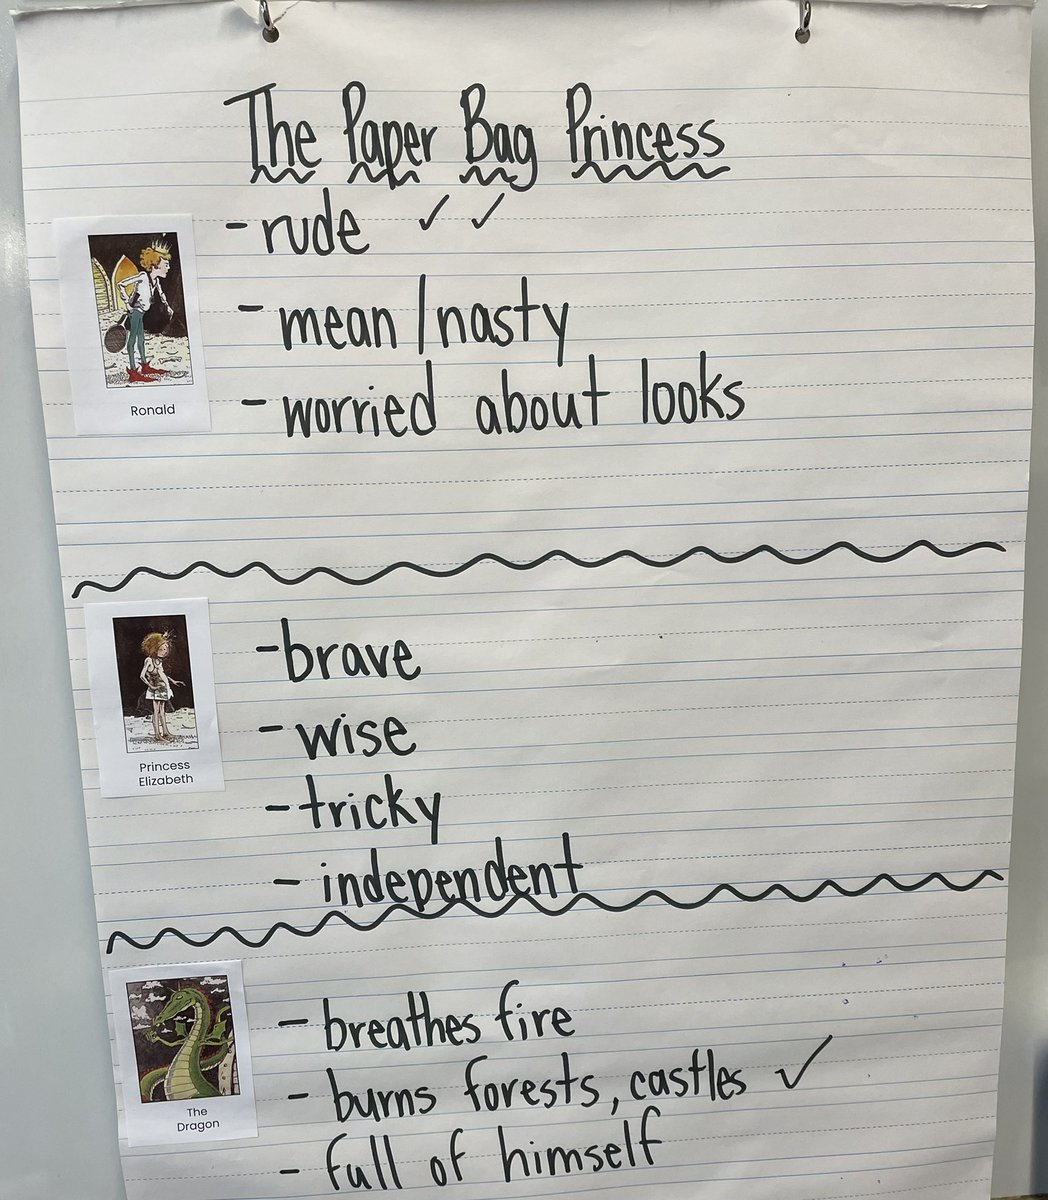 The Paper Bag Princess
- rude ✓ ✓
- mean/nasty
- worried about looks
Ronald
- brave
- wise
- tricky
- independent
Princess
Elizabeth
- breathes fire
- burns forests, castles ✓
- full of himself
The
Dragon